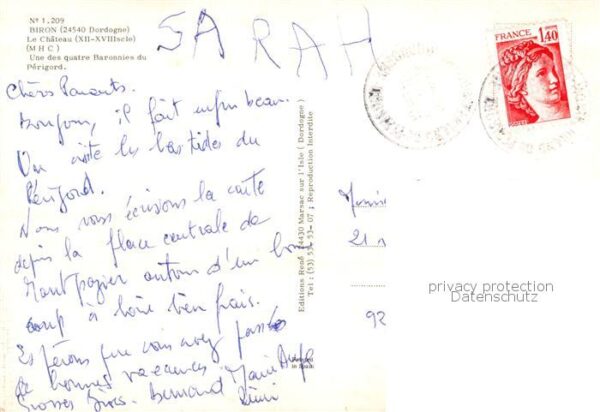 Nº 1.209
BIRON (24540 Dordogne)
Le Château (XII-XVIIIscle)
(M H C)
Une des quatre Baronnies du
Périgord.
SARAH
FRANCE
1,40
POSTES
Chers Parents.
Bonjour, il fait enfin beau.
On visite les bastides du
Périgord.
Nous vous écrivons la carte
depuis la place centrale de
Montpazier autour d'un bon
coup à boire bien frais.
Espérons que vous avez passé
de bonnes vacances
Grosses Bises. Bernard Marie Ange
Rémi
Editions René (24430 Marsac sur l'Isle (Dordogne)
Tel : (53) 53-53-07 ; Reproduction Interdite
21
92
privacy protection
Datenschutz